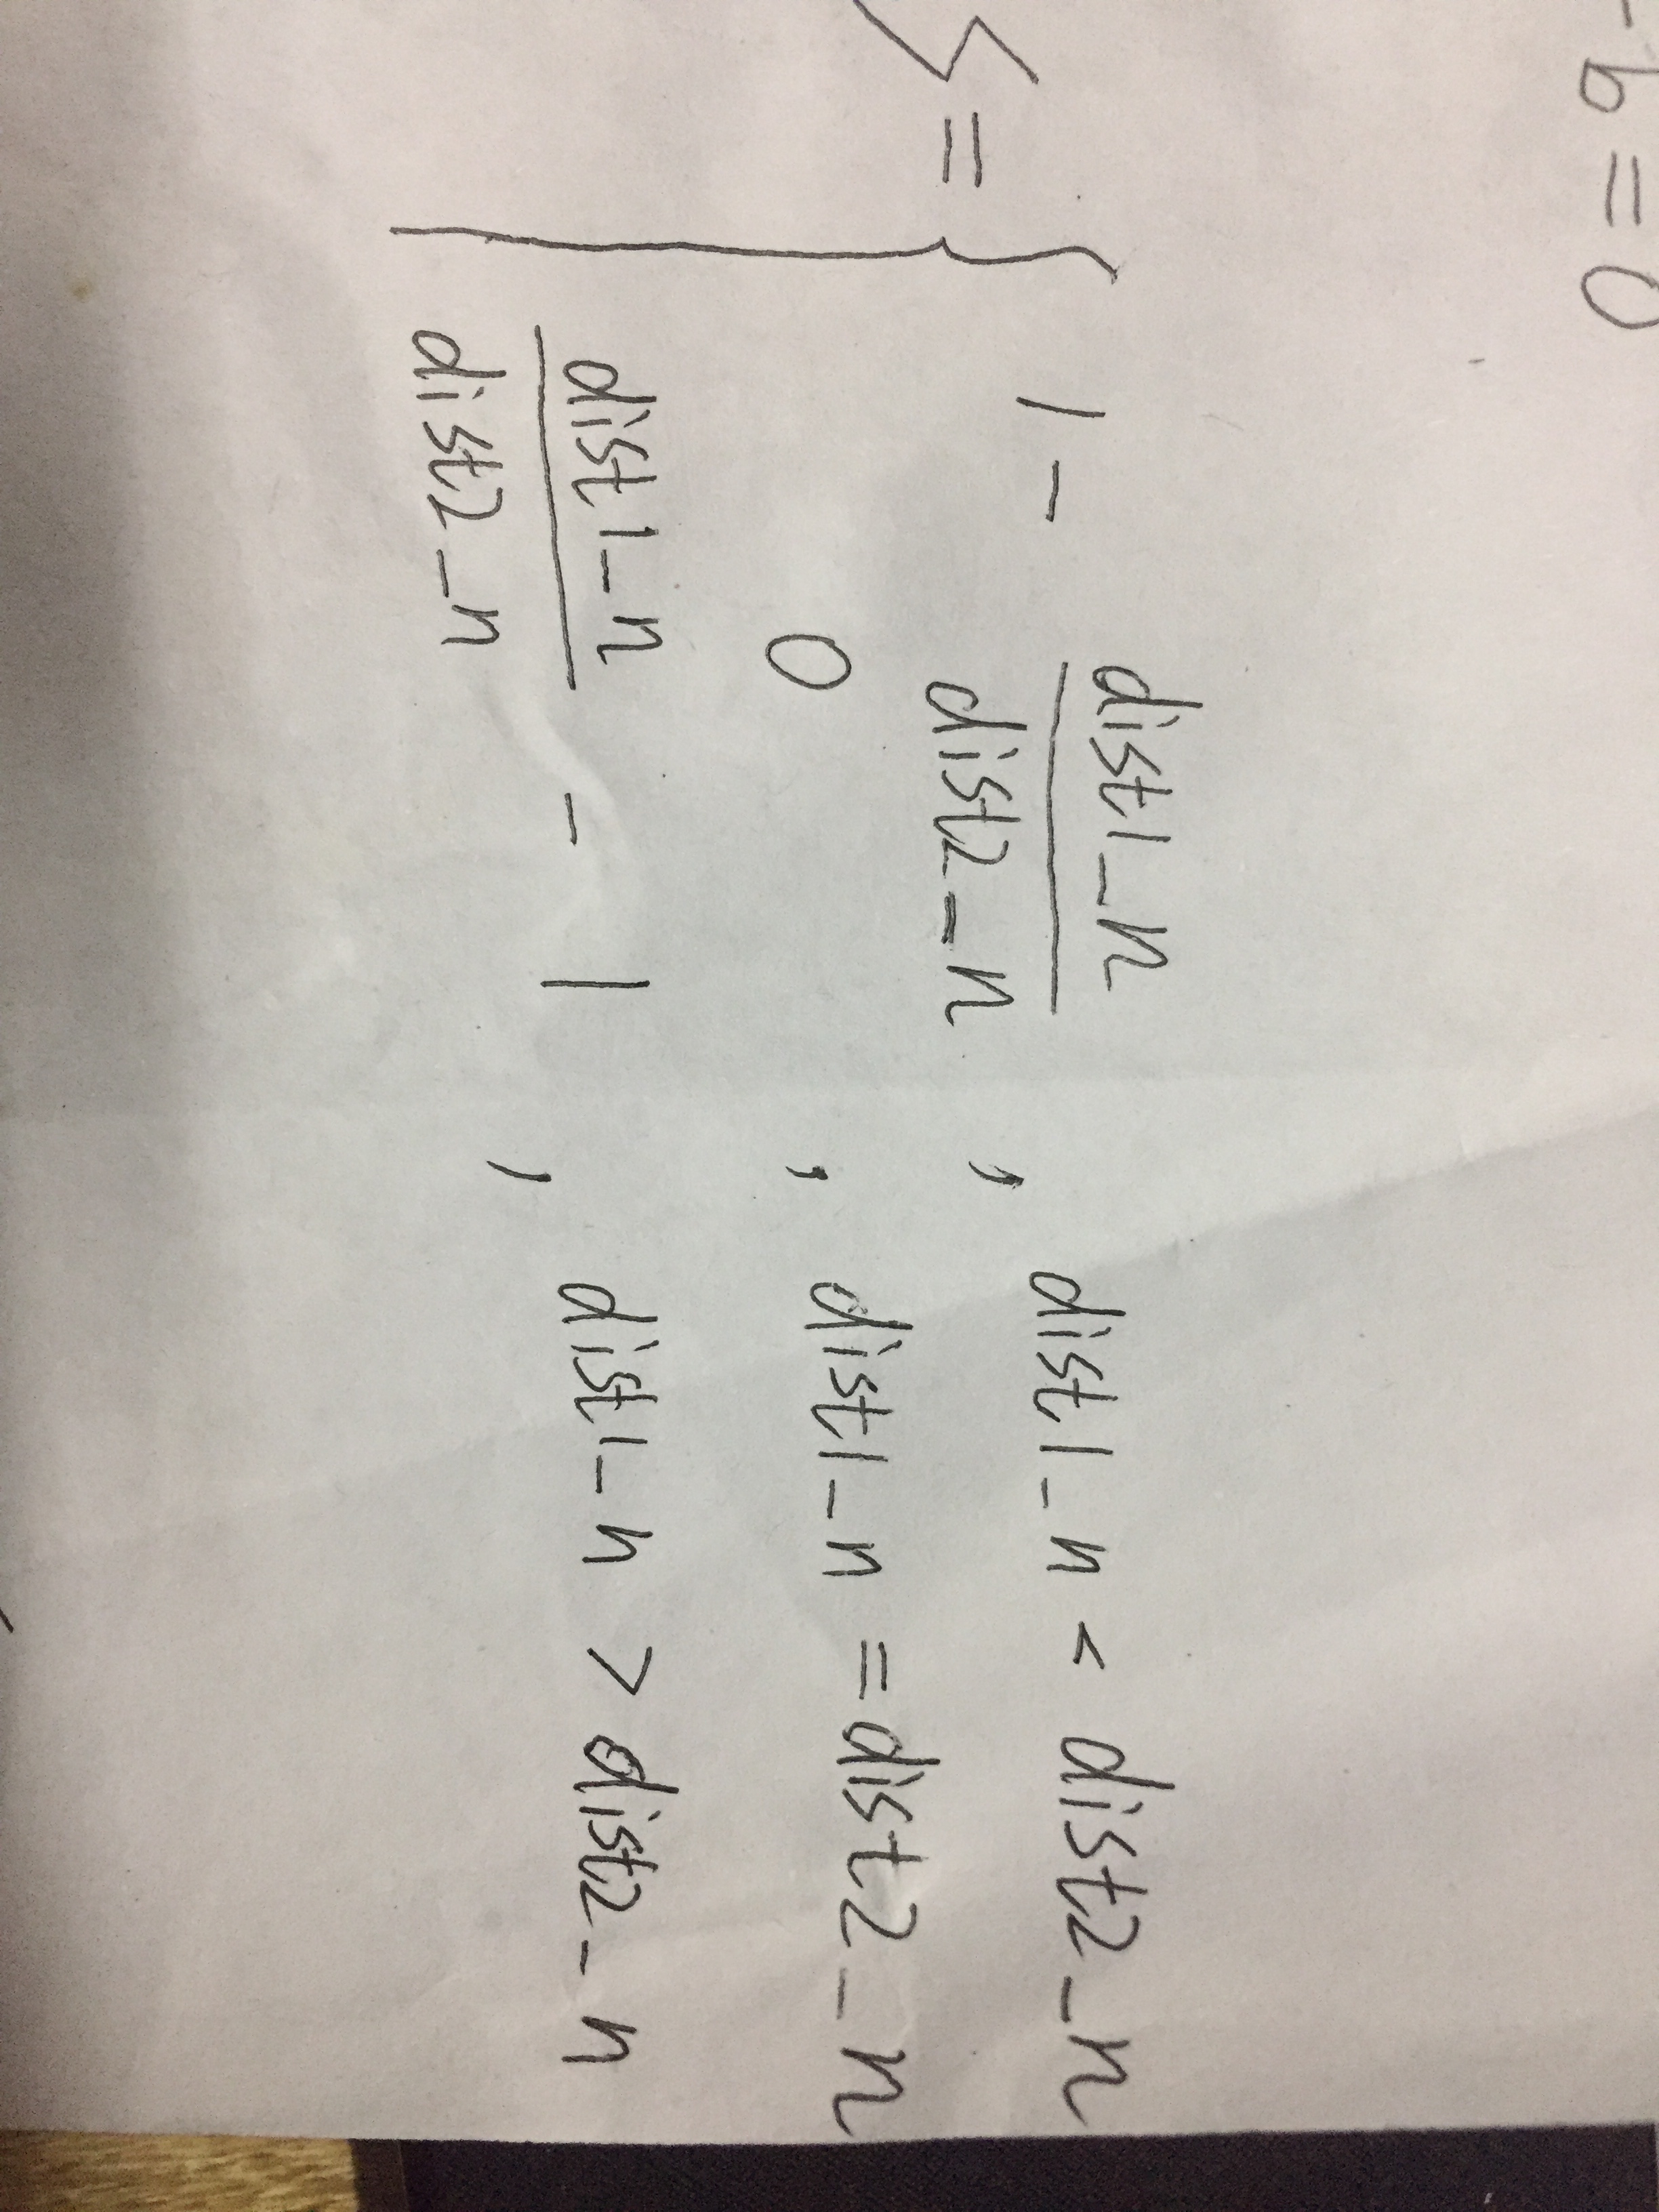 0 = 9 -
S = {
1 - dist1_n
dist2_n , dist1_n < dist2_n
0 , dist1_n = dist2_n
dist1_n - 1 , dist1_n > dist2_n
dist2_n